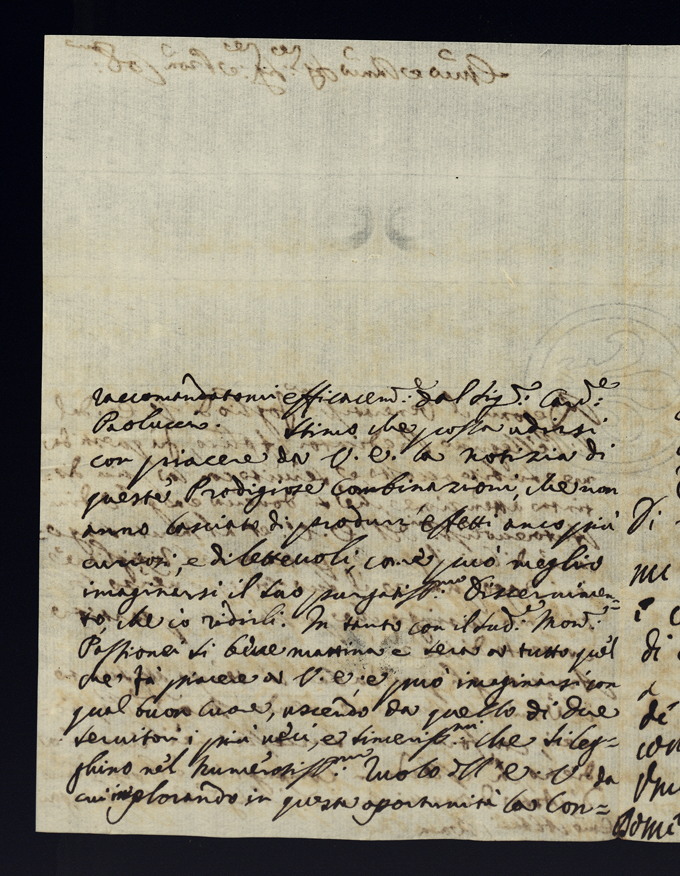 raccomandatomi efficacem:te dal Sig:r Card:e
Paolucci. Stimo che possa udirsi
con piacere da V. E. la notizia di
queste Prodigiose Combinazioni, che non
anno lasciato di produrr' effetti anco più
curiosi, e dilettevoli, com'è può meglio
imaginarsi il suo purgatiss:mo Discernimen=
to, che io ridirli. In tanto con il sud:o Mon:r
Passionei si beve mattina e sera a tutto quel
che fà piacere a V. E., e può imaginarsi con
qual buon cuore, uscendo da quello di due
servitori i più veri, e sinceriss:mi che si leg=
ghino nel numerosiss:mo Ruolo dell' E. V. da
cui implorando in questa oportunità la con=
Di
mi
i
di
di
con